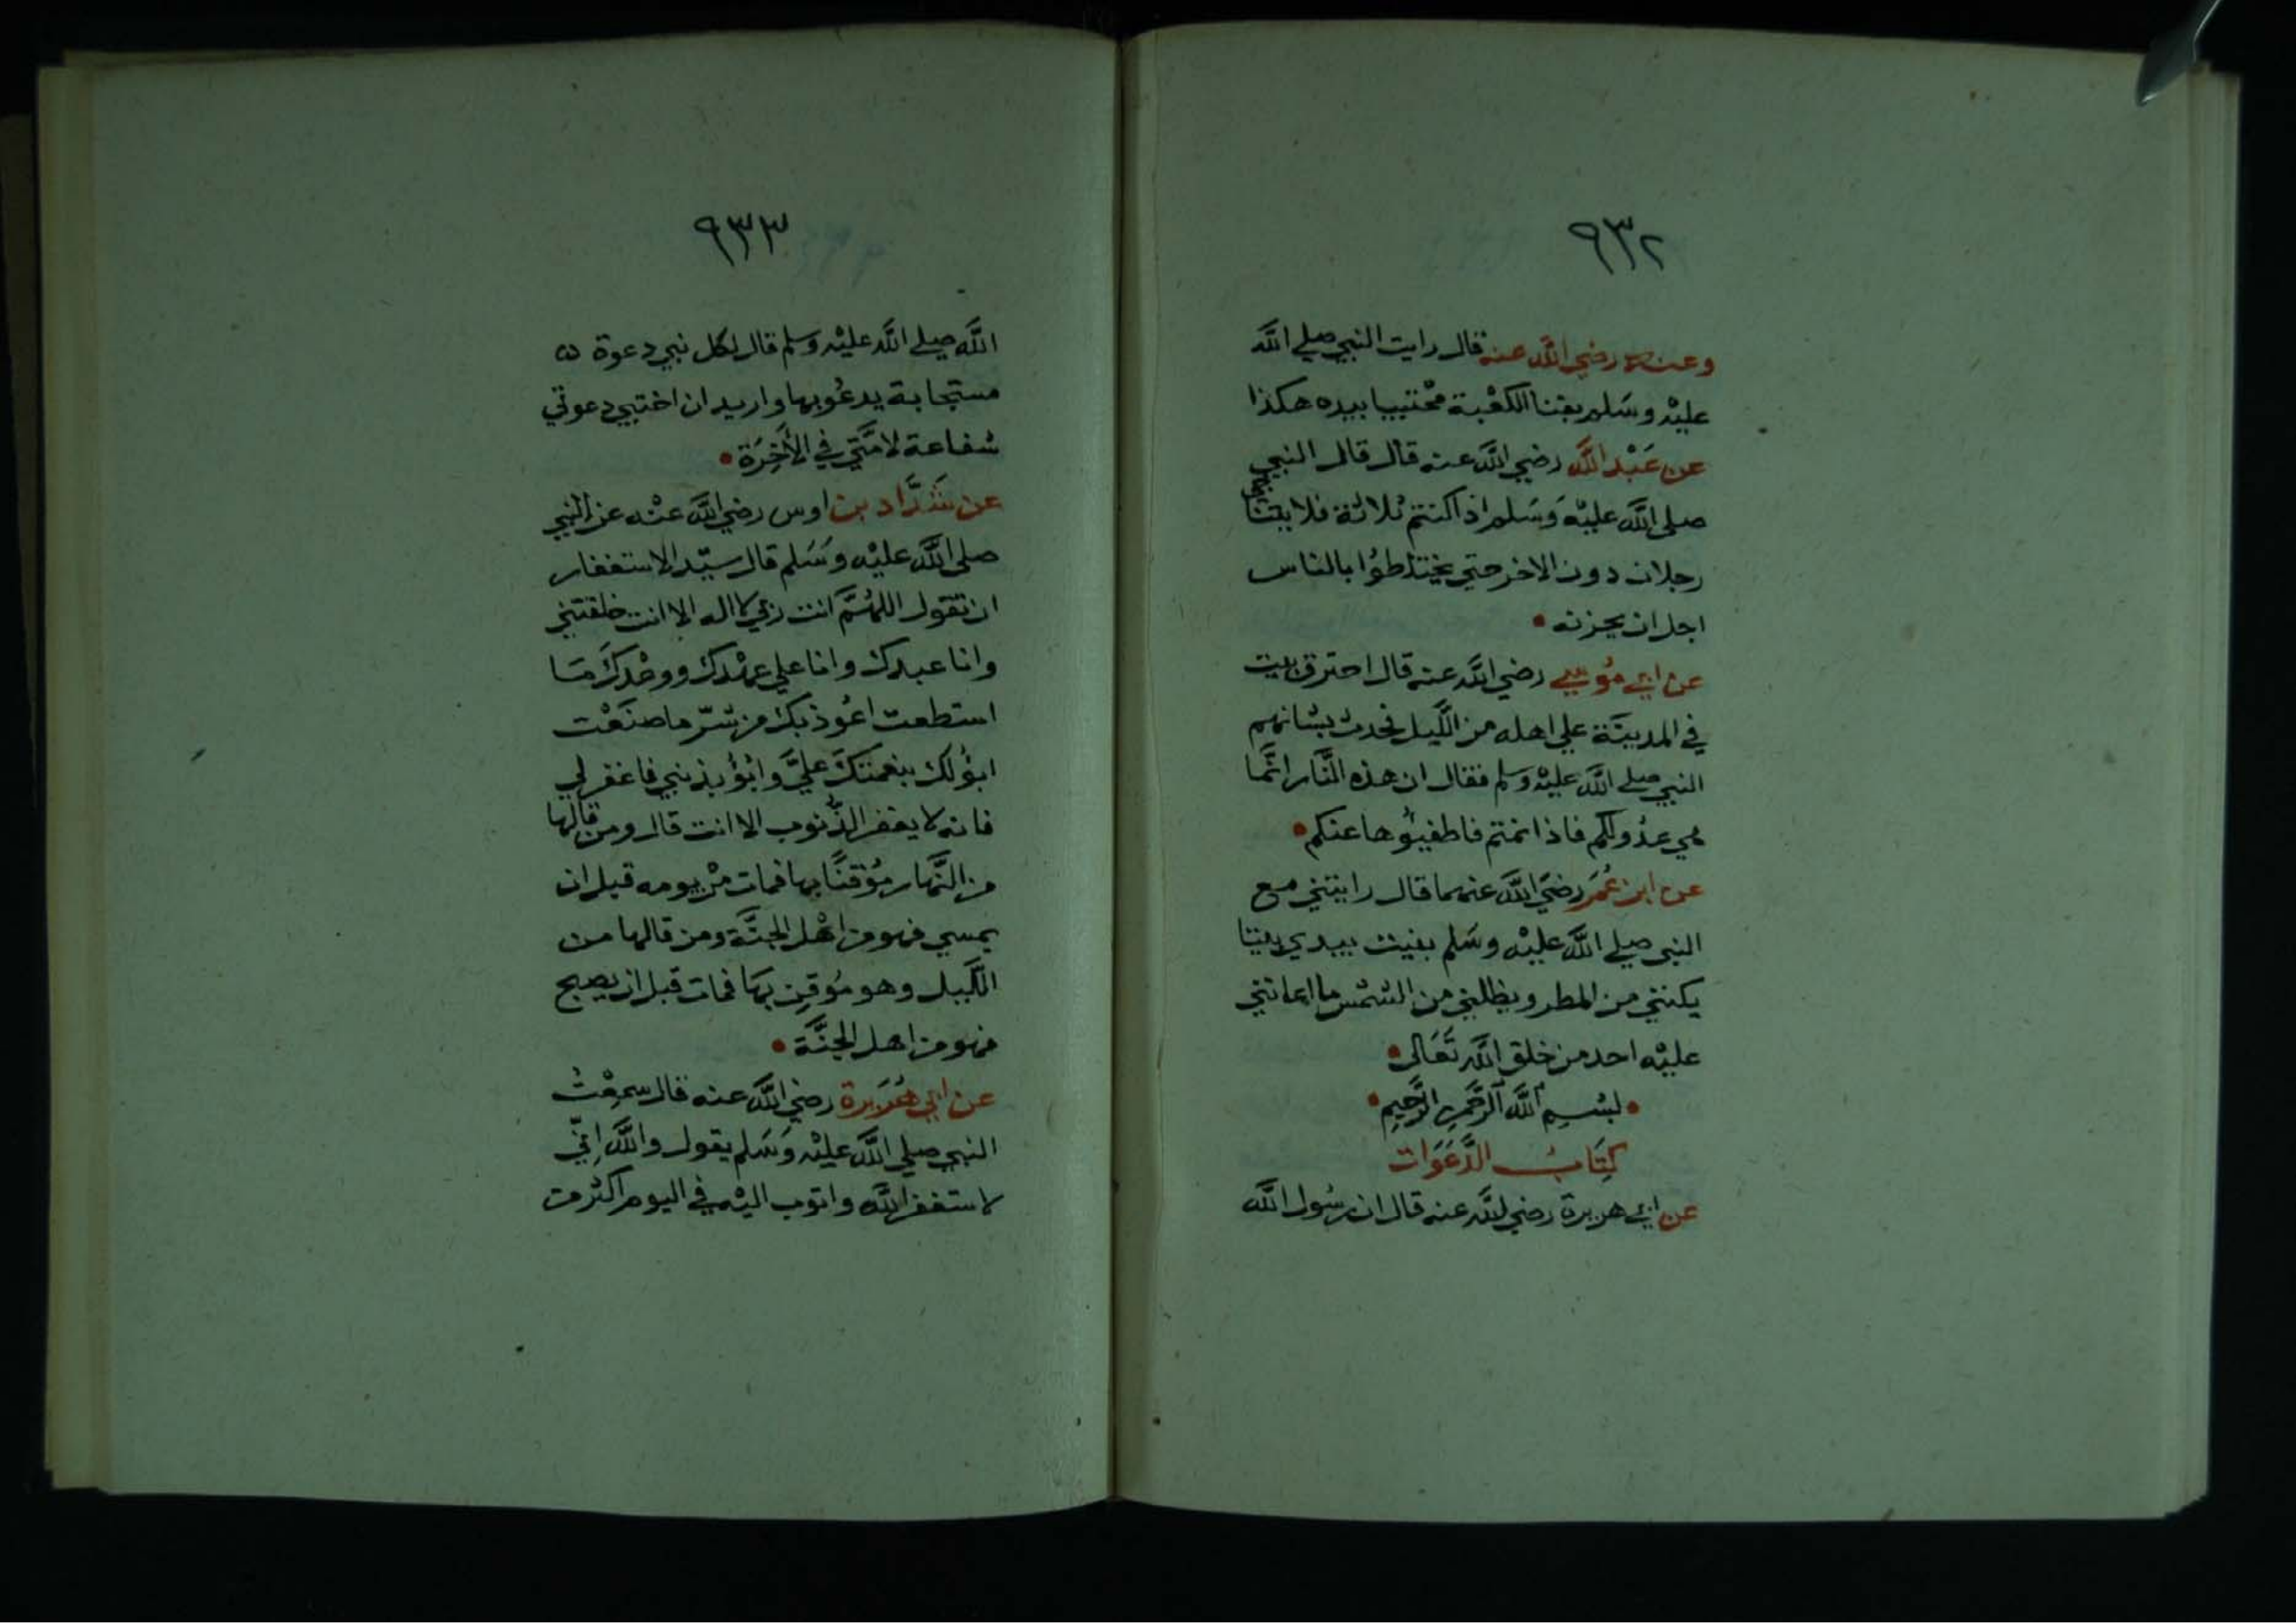 ٩٣٢
وعنه رضي الله عنه قال رايت النبي صلي الله
عليْه وسَلم بفنا الكعْبة محْتبيا بيده هكذا
عن عَبْد اللَّه رضي اللَّه عنه قال قال النبي
صلى اللَّه عليْه وَسَلم اذا كنتم ثلاثة فلا يتنا
رجلان دون الاخر حتي يختلطوُا بالناس
اجل ان يحزنه
عن ابي مُوسي رضي اللَّه عنه قال احترق بيت
في المدينَة علي اهله من اللَّيل فحدث بشانهم
النبي صلي اللَّه عليْه وسلم فقال ان هذه النَّار انَّما
هي عدُولكم فاذا نمتم فاطفيُوها عنكم
عن ابن عُمَر رضيَ اللَّه عنهما قال رايتني مع
النبي صلي اللَّه عليْه وسَلم بنيت بيدي بيتا
يكنني من المطر ويظلني من الشمْس ما اعانني
عليْه احد من خلق اللَّه تَعَالى
بسْمِ اللَّه الرَّحمنِ الرَّحِيمِ
كِتَابُ الدَّعَوَات
عن ابي هريرة رضي اللَّه عنه قال ان رسُول اللَّه
٩٣٣
اللَّه صلي اللَّه عليْه وسلم قال لكل نبي دعوة
مستجابة يدعُوبها واريد ان اختبي دعوتي
شفاعة لامَّتي في الأَخِرَة
عن شَدَّاد بن اوس رضي اللَّه عنْه عن النبي
صلى اللَّه عليْه وسَلم قال سيّد الاستغفار
ان تقول اللهُمَّ انت ربي لا اله الا انت خلقتني
وانا عبدك وانا علي عهْدك ووعْدكَ مَا
استطعت اعُوذ بك من شرّ ما صنَعْت
ابؤلك بنعمتكَ عليَّ وابُؤ بذنبي فاغفر لي
فانه لا يغفر الذُّنوب الا انت قال ومن قالها
من النَّهار مُؤقنًا بها فمات منْ يومه قبل ان
يمسي فهو من اهْل الجنَّة ومن قالها من
اللَّيل وهو مُوقِن بهَا فمات قبل ان يصبح
فهو من اهل الجنَّة
عن ابي هُرَيرة رضي اللَّه عنه قال سمِعْتُ
النبي صلي اللَّه عليْه وَسَلم يقول واللَّه اِنّي
لاستغفر اللَّه واتوب اليْه في اليوم اكثر من